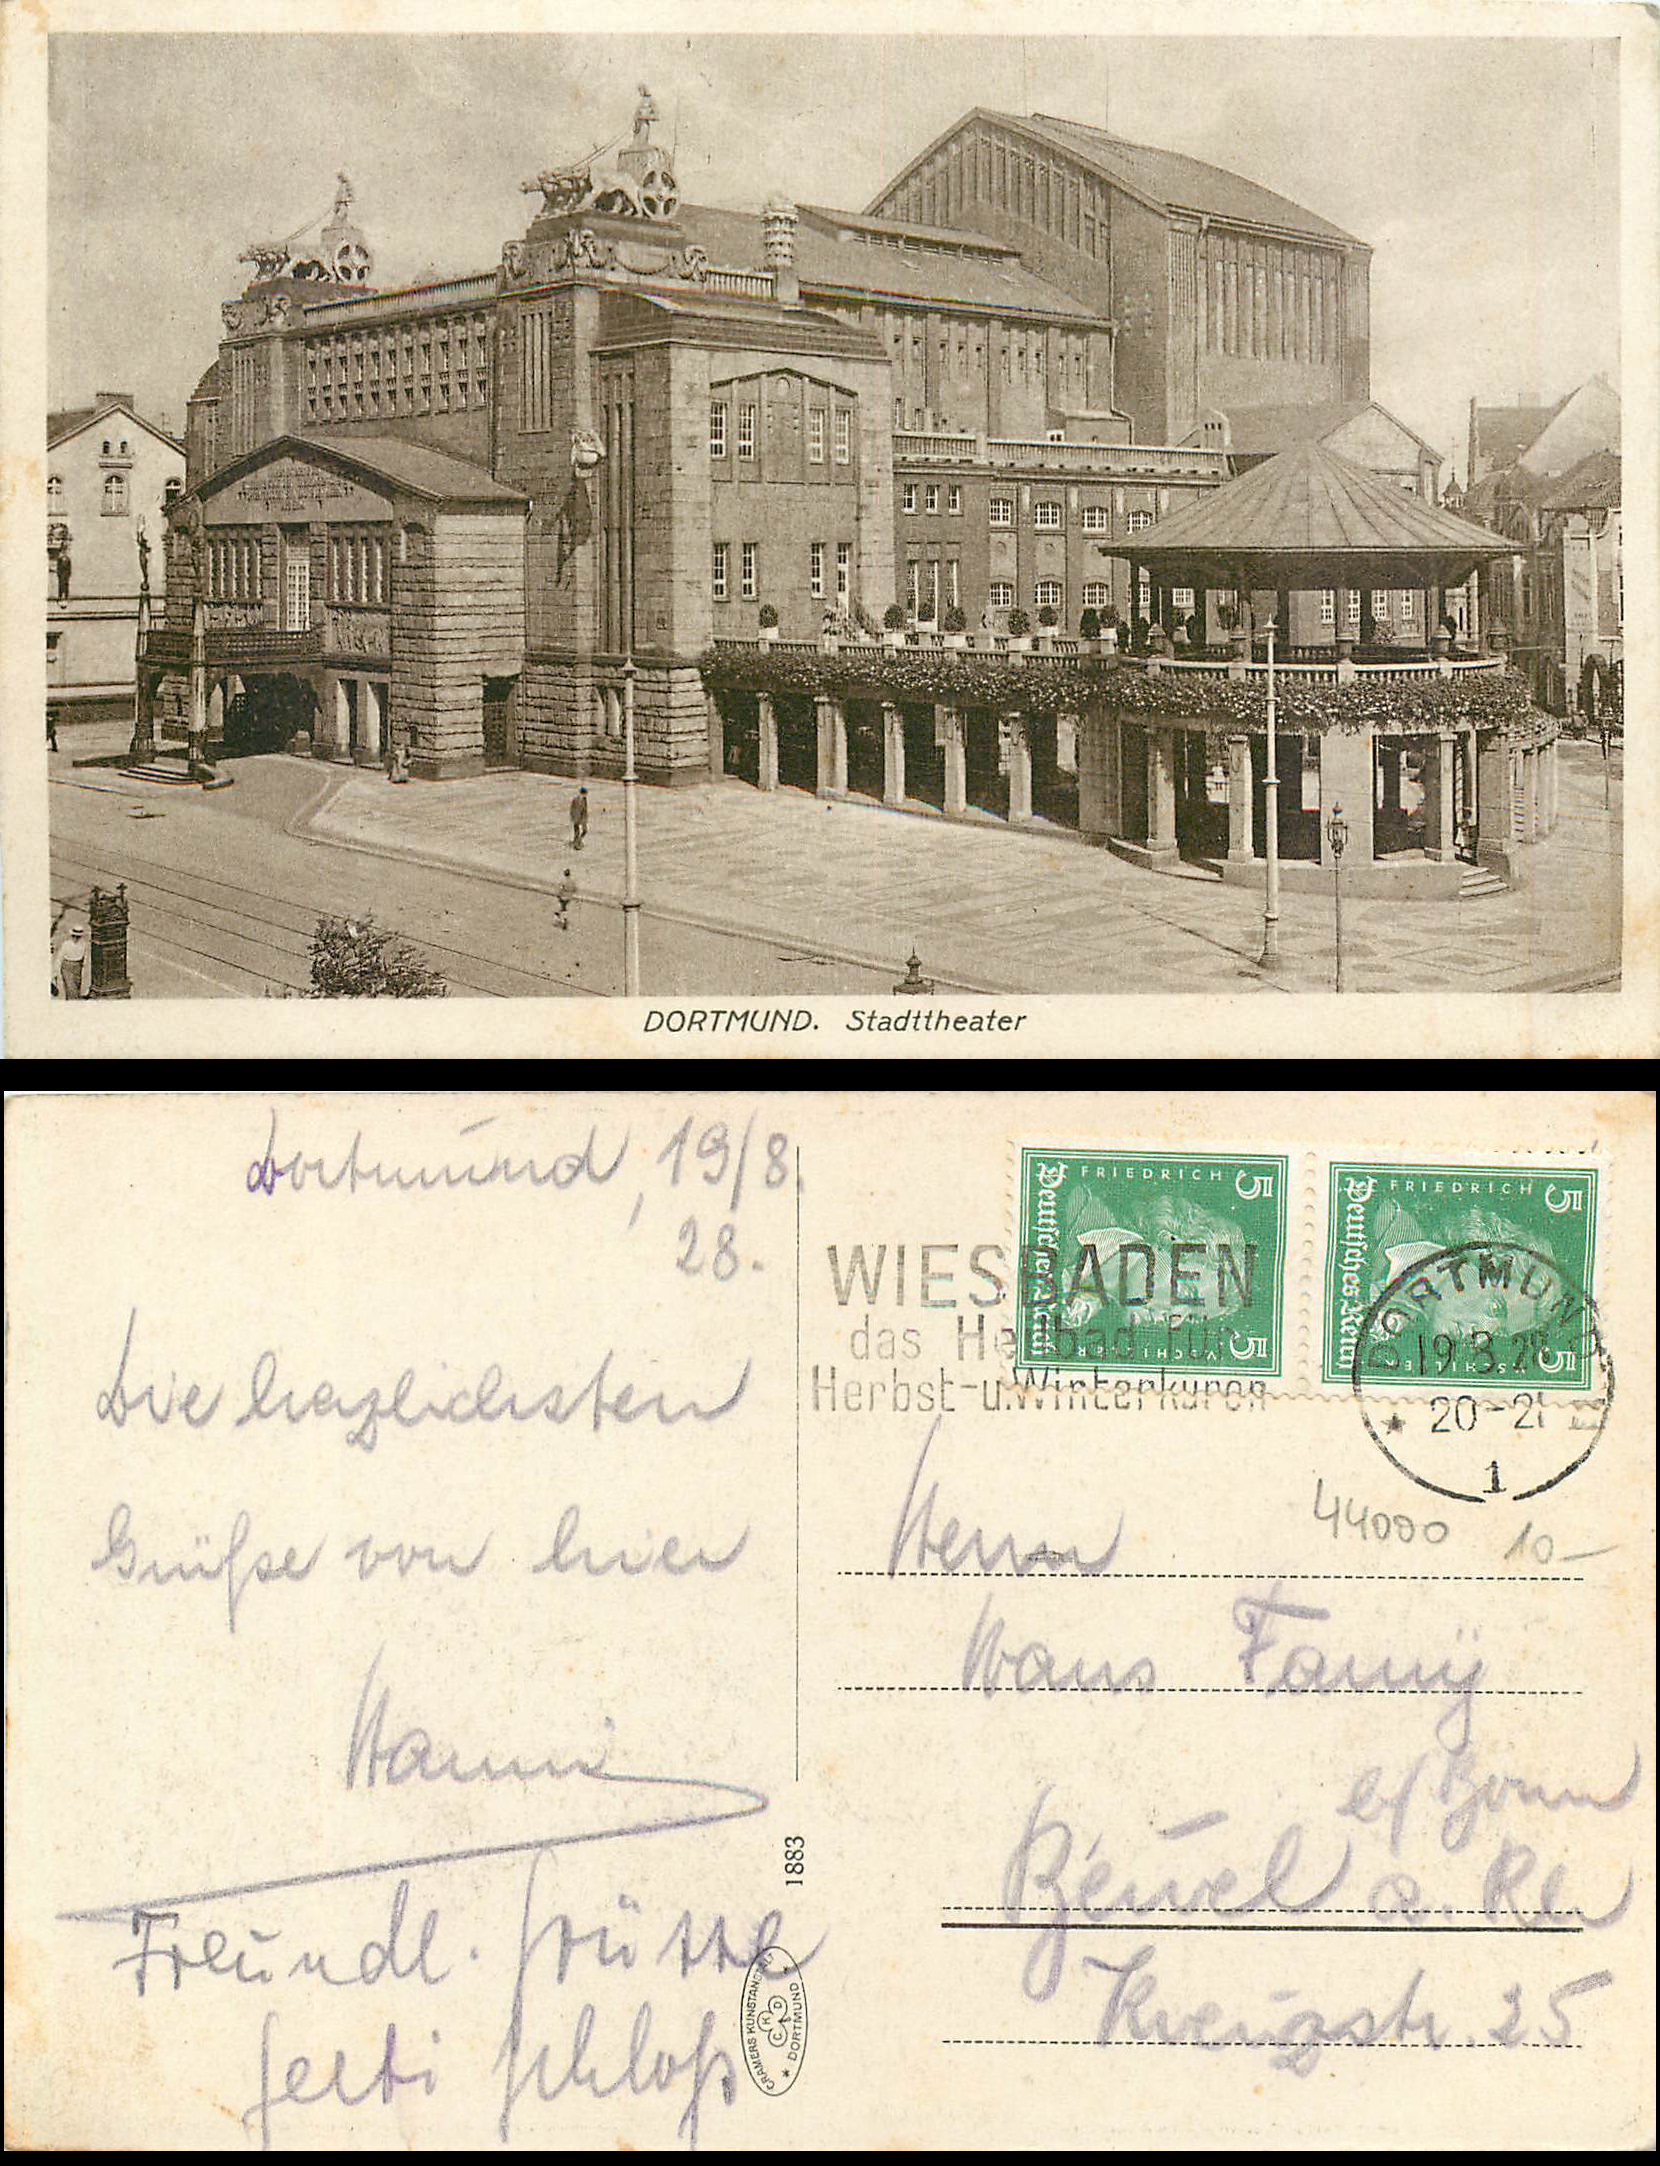 DORTMUND. Stadttheater
Dortmund, 19/8.
28.
Die herzlichsten
Grüße von hier
Hanni
Freundl. Grüsse
Gerti Schloß
1883
CRAMERS KUNSTANSTALT
CKD
* DORTMUND *
FRIEDRICH
5
Deutsches Reich
5
V. SCHILLER
FRIEDRICH
5
Deutsches Reich
5
V. SCHILLER
WIESBADEN
das Heilbad für
Herbst-u.Winterkuren
DORTMUND
20-21
* 1
44000 10-
Herrn
Hans
b/Bonn
Beuel a. Rh
Kreuzstr. 25